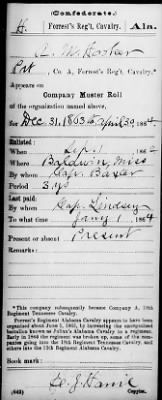 (Confederate.)
H. Forrest's Reg't, Cavalry. Ala.
Pvt, Co. A, Forrest's Reg't, Cavalry.*
Appears on
Company Muster Roll
of the organization named above,
for Dec 31, 1863 to April 30, 1864
Enlisted:
When Sept. 1, 186
Where Baldwin, Miss
By whom Capt. Baxter
Period 3 yrs
Last paid:
By whom Capt Lindsey
To what time Jany 1, 1864
Present or absent Present
Remarks:
*This company subsequently became Company A, 18th
Regiment Tennessee Cavalry.
Forrest's Regiment Alabama Cavalry appears to have
been organized about June 1, 1863, by increasing the
battalion known as Julian's Alabama Cavalry to a regiment.
Early in 1865 the regiment was broken up, some of the com-
panies going into the 18th Regiment Tennessee Cavalry, and
others into the 13th Regiment Alabama Cavalry.
Book mark:
(642) Copyist.